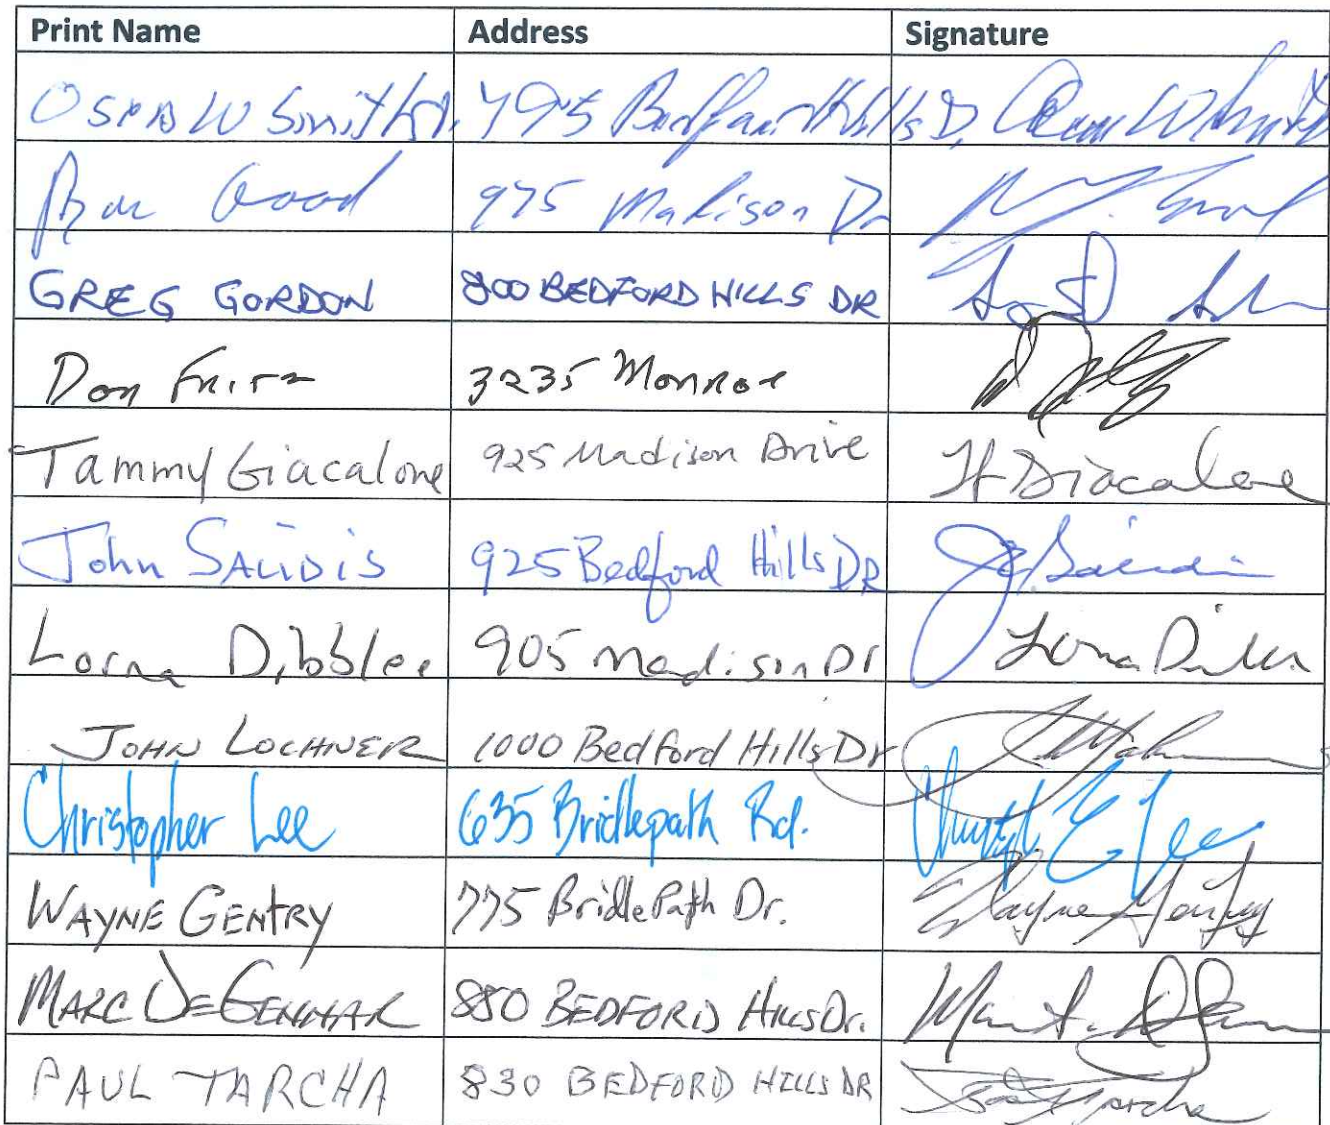 Print Name Address Signature
W Smith 795 Hills D,
Good 975 Madison Dr
GREG GORDON 800 BEDFORD HILLS DR
Don Fritz 3235 Monroe
Tammy Giacalone 925 Madison Drive Giacalone
John SAIDIS 925 Bedford Hills DR
Lorna Dibblee 905 Madison Dr Lorna
JOHN LOCHNER 1000 Bedford Hills Dr
Christopher Lee 635 Bridlepath Rd. E Lee
WAYNE GENTRY 775 BridlePath Dr. Wayne Gentry
MARC 880 BEDFORD HILLS Dr.
PAUL TARCHA 830 BEDFORD HILLS DR Tarcha